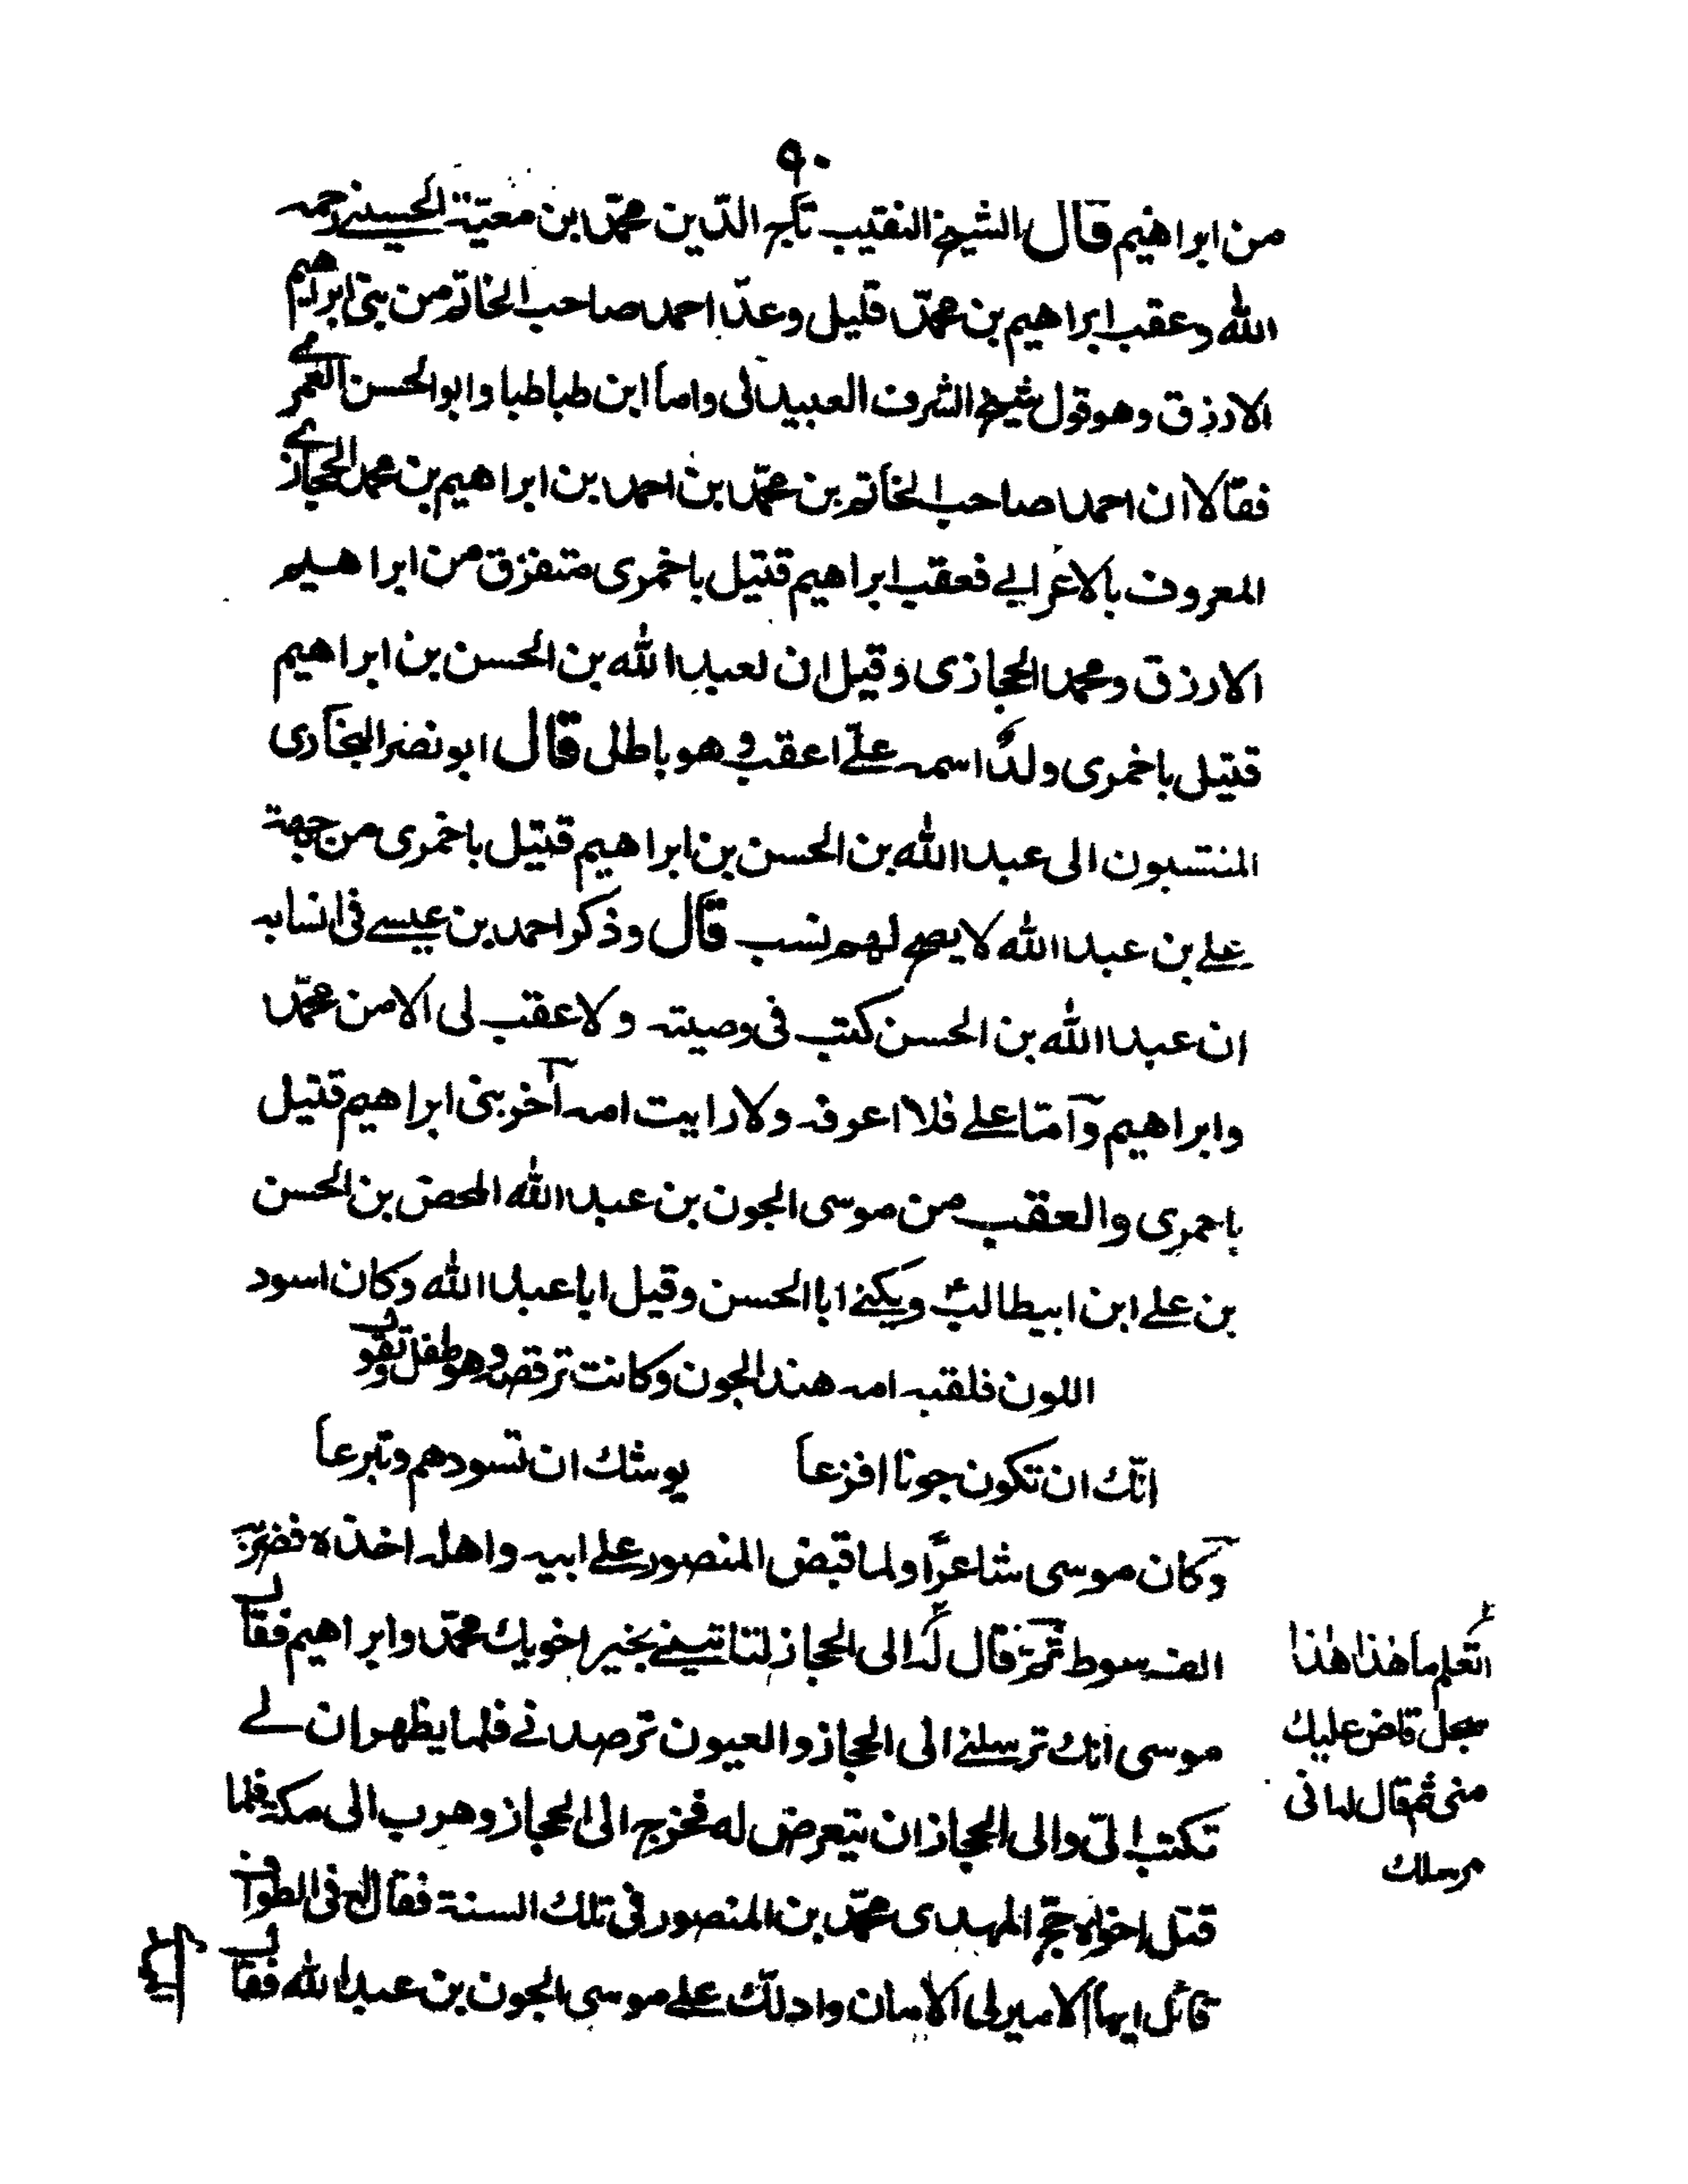 ٩٠
من ابراهيم قال الشيخ النقيب تاج الدّين محمّد ابن معيّة الحسيني رحمه
الله وعقب ابراهيم بن محمّد قليل وعدّ احمد صاحب الخاتم من بنى ابراهيم
الازرق وهو قول شيخ الشرف العبيدلى واما ابن طباطبا وابو الحسن العمري
فقالا ان احمد صاحب الخاتم بن محمّد بن احمد بن ابراهيم بن محمد الحجازي
المعروف بالاعرابي فعقب ابراهيم قتيل باخمرى متفرق من ابراهيم
الازرق ومحمد الحجازى وقيل ان لعبد الله بن الحسن بن ابراهيم
قتيل باخمرى ولدًا اسمه علىّ اعقب وهو باطل قال ابو نصر البخارى
المنتسبون الى عبد الله بن الحسن بن ابراهيم قتيل باخمرى من جهة
علي بن عبد الله لا يصح لهم نسب قال وذكر احمد بن عيسى فى انسابه
ان عبد الله بن الحسن كتب فى وصيته ولا عقب لى الا من محمّد
وابراهيم وامّا علي فلا اعرفه ولا رايت امه آخر بنى ابراهيم قتيل
باحمرى والعقب من موسى الجون بن عبد الله المحض بن الحسن
بن على ابن ابيطالب ويكنى ابا الحسن وقيل ابا عبد الله وكان اسود
اللون فلقبه امه هند الجون وكانت ترقصه وهو طفل وتقول
انّك ان تكون جونا افزعا يوشك ان تسودهم وتبرعا
وكان موسى شاعرًا ولما قبض المنصور على ابيه واهله اخذه فضربه
الف سوط ثم قال له الى الحجاز لتاتيني بخبر اخويك محمّد وابراهيم فقال
موسى انك ترسلنى الى الحجاز والعيون ترصدنى فلما يظهران لى
تكتب الىّ والى الحجاز ان يتعرض له فخرج الى الحجاز وهرب الى مكة فلما
قتل اخواه حج المهدى محمّد بن المنصور فى تلك السنة فقال له فى الطواف
قائل ايها الامير لى الامان وادلك على موسى الجون بن عبد الله فقال
اتعلم ما هذا هذا
سجل قاض عليك
منى ثم قال له انى
مرسلك